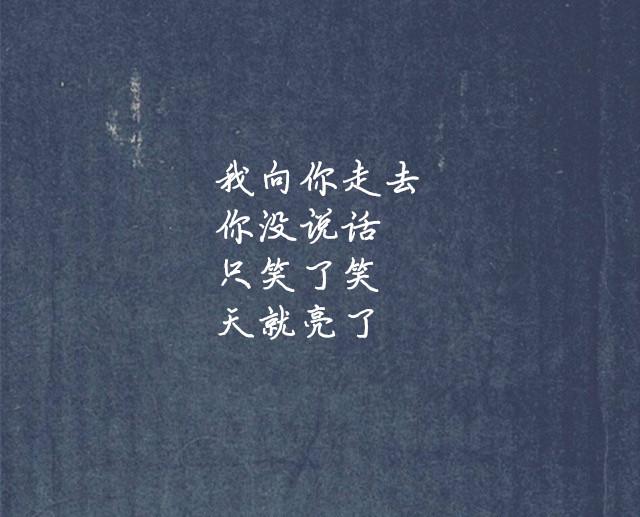 我向你走去
你没说话
只笑了笑
天就亮了